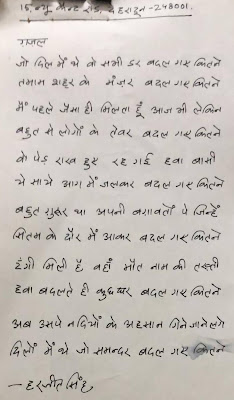 15, न्यू कैन्ट रोड, देहरादून - 248001.
ग़ज़ल
जो दिल में थे वो सभी डर बदल गए कितने
तमाम शहर के मंज़र बदल गए कितने
मैं पहले जैसा ही मिलता हूँ आज भी लेकिन
बहुत से लोगों के तेवर बदल गए कितने
वो पेड़ राख हुए रह गई हवा बासी
ये साये आग में जलकर बदल गए कितने
बहुत ग़ुरूर था अपनी बग़ावतों पे जिन्हें
सितम के दौर में आकर बदल गए कितने
टंगी मिली है वहाँ मौत नाम की तख़्ती
हवा बदलते ही कुछ घर बदल गए कितने
अब उसपे नदियों के अहसान गिने जाने लगे
दिलों में थे जो समन्दर बदल गए कितने
— हरजीत सिंह